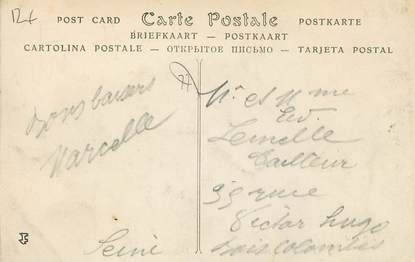 POST CARD Carte Postale POSTKARTE
BRIEFKAART — POSTKAART
CARTOLINA POSTALE — ОТКРЫТОЕ ПИСЬМО — TARJETA POSTAL
Bons baisers
Marcelle
Mr et Mme
Ed.
Lemelle
Tailleur
99 rue
Victor Hugo
Bois Colombes
Seine